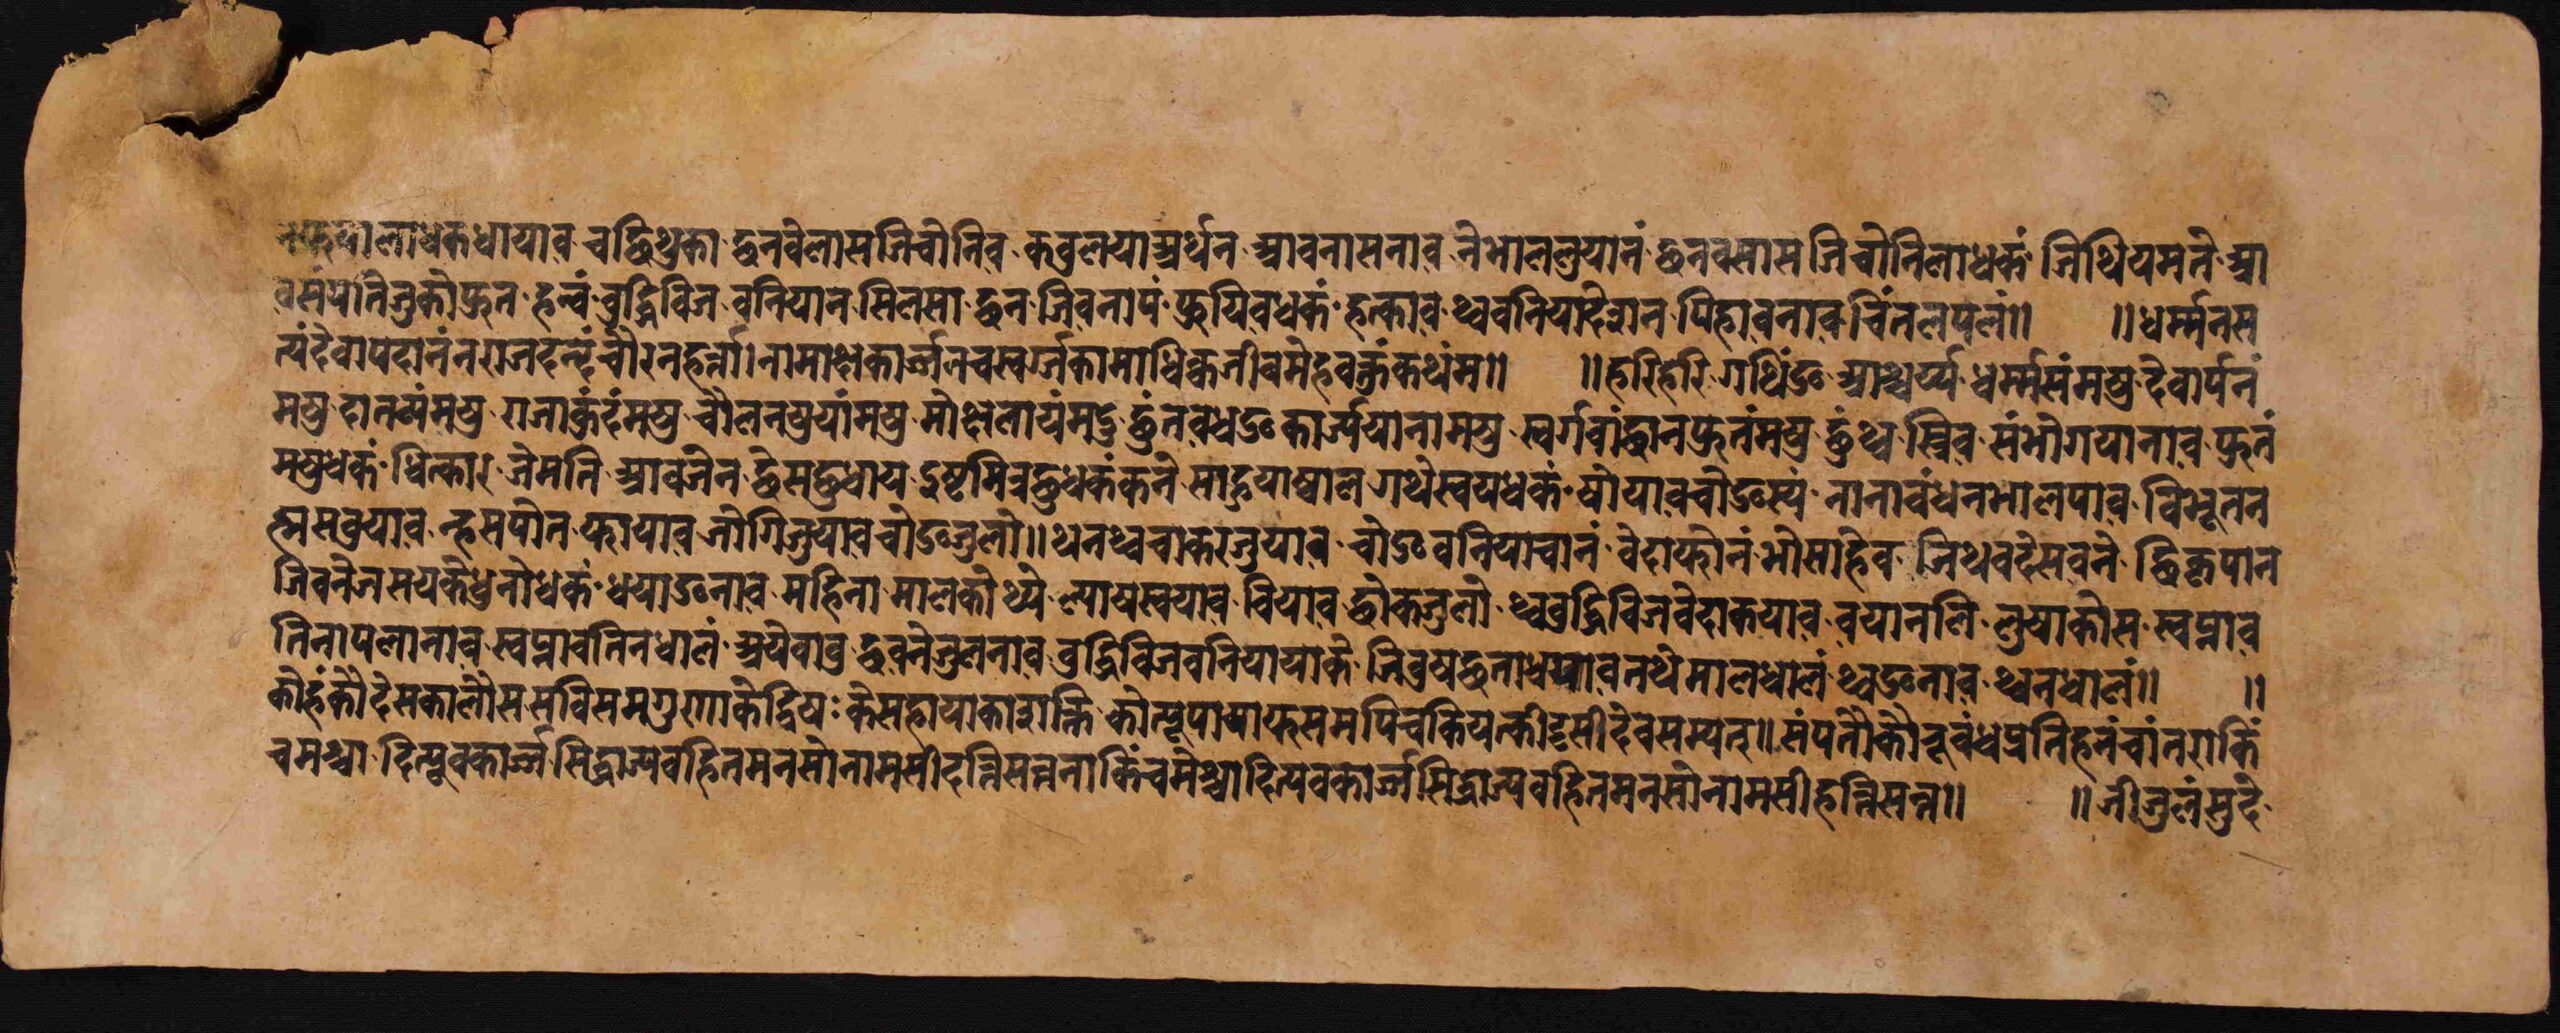 लाधक धायाव चछि थुका छन वेलास जिवोनिव कवुलया अर्थन आवनासनाव नेभाललुयानं छनवसास जिवोनिलाधकं जिथियमते आ
वसंपति जुको फुत हन्वं वुद्धिविज वनियान सिलसा छन जिवनापं फुयिवधकं हङाव थ्व वनियादेशन पिहावनाव चिंतलपलं॥ ॥धर्म्मनस
त्यंदेवापदानंनराजदन्दंचौरनहर्न्ना।नामोक्षकार्ज्जनचस्वर्गकामाधिक्वजीवमेहवक्तंकथंम॥ ॥हरिहरि गथिंङ आश्चर्य्य धर्म्मसंमषु देवार्पनं
मषु दानसंमषु राजाकंदंमषु चौलनखुयांमषु मोक्षलायंमदु छुंतवधङ कार्ज्ययानामषु स्वर्गवांछानफुतंमषु छुं थ्व स्त्रिव संभोगयानाव फुतं
मषुधकं धित्कार जेमति आवजेन छेसछुधाय इष्टमित्रछुधकंकने साहुयाख्वाल गथेस्वयधकं षोयावचोङस्यं नानावंधनभालपाव विभूतन
ह्मसवुयाव न्हसपोत फायाव जोगिजुयावचोङजुलो॥ थनथ्वचाकरजुयाव चोङ वनियाचानं वेदाफोनं भोसाहेव जिथवदेसवने छिकृपान
जिवनेजसयकेधुनोधकं धयाङनाव महिना मालकोथ्यं ल्याषस्वयाव वियाव छोकजुलो थ्ववुद्धिविजवेदाकयाव वयानलि लुयाकोस स्वप्नाव
तिनापलानाव स्वप्नावतिनधालं अयेवावु छवनेजुलनाव वुद्धिविजवनियायाके जिवुषछुनाधयावनथेमालधालं थ्वङनाव थ्वनधालं॥ ॥
कोहंकौदेसकालौससविसमगुणाकेद्विषः केसहायाकाशक्ति कोत्पूपायाफसमपिचकियत्कीदृसीदेवसम्पत्॥ संपतौकौनूवंधप्रतिहतंवांतराकिं
चमेश्वा दित्पूवकार्ज्जसिद्धाज्यवहितमनसोनामसीदन्निसन्नना किंचमेश्वादित्यवकार्ज्जसिद्धाज्यवहितमनसोनामसीहन्निसन्न॥ ॥ जीजुलंसुदे